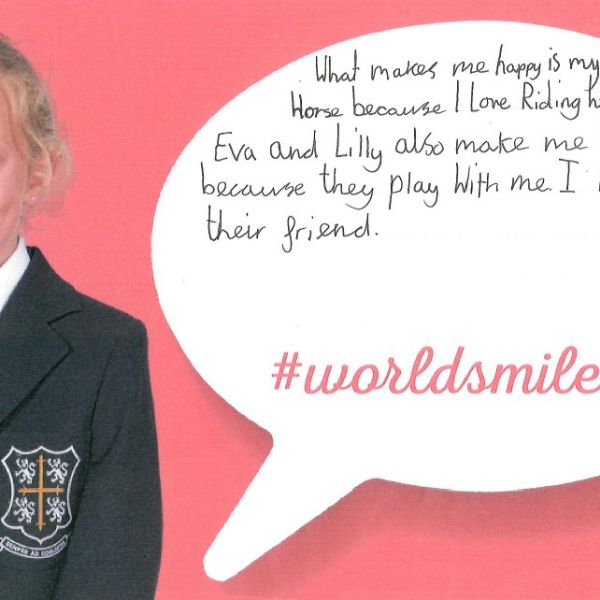 What makes me happy is my
Horse because I Love Riding
Eva and Lilly also make me
because they play With me. I
their friend.
#worldsmile
SEMPER AD